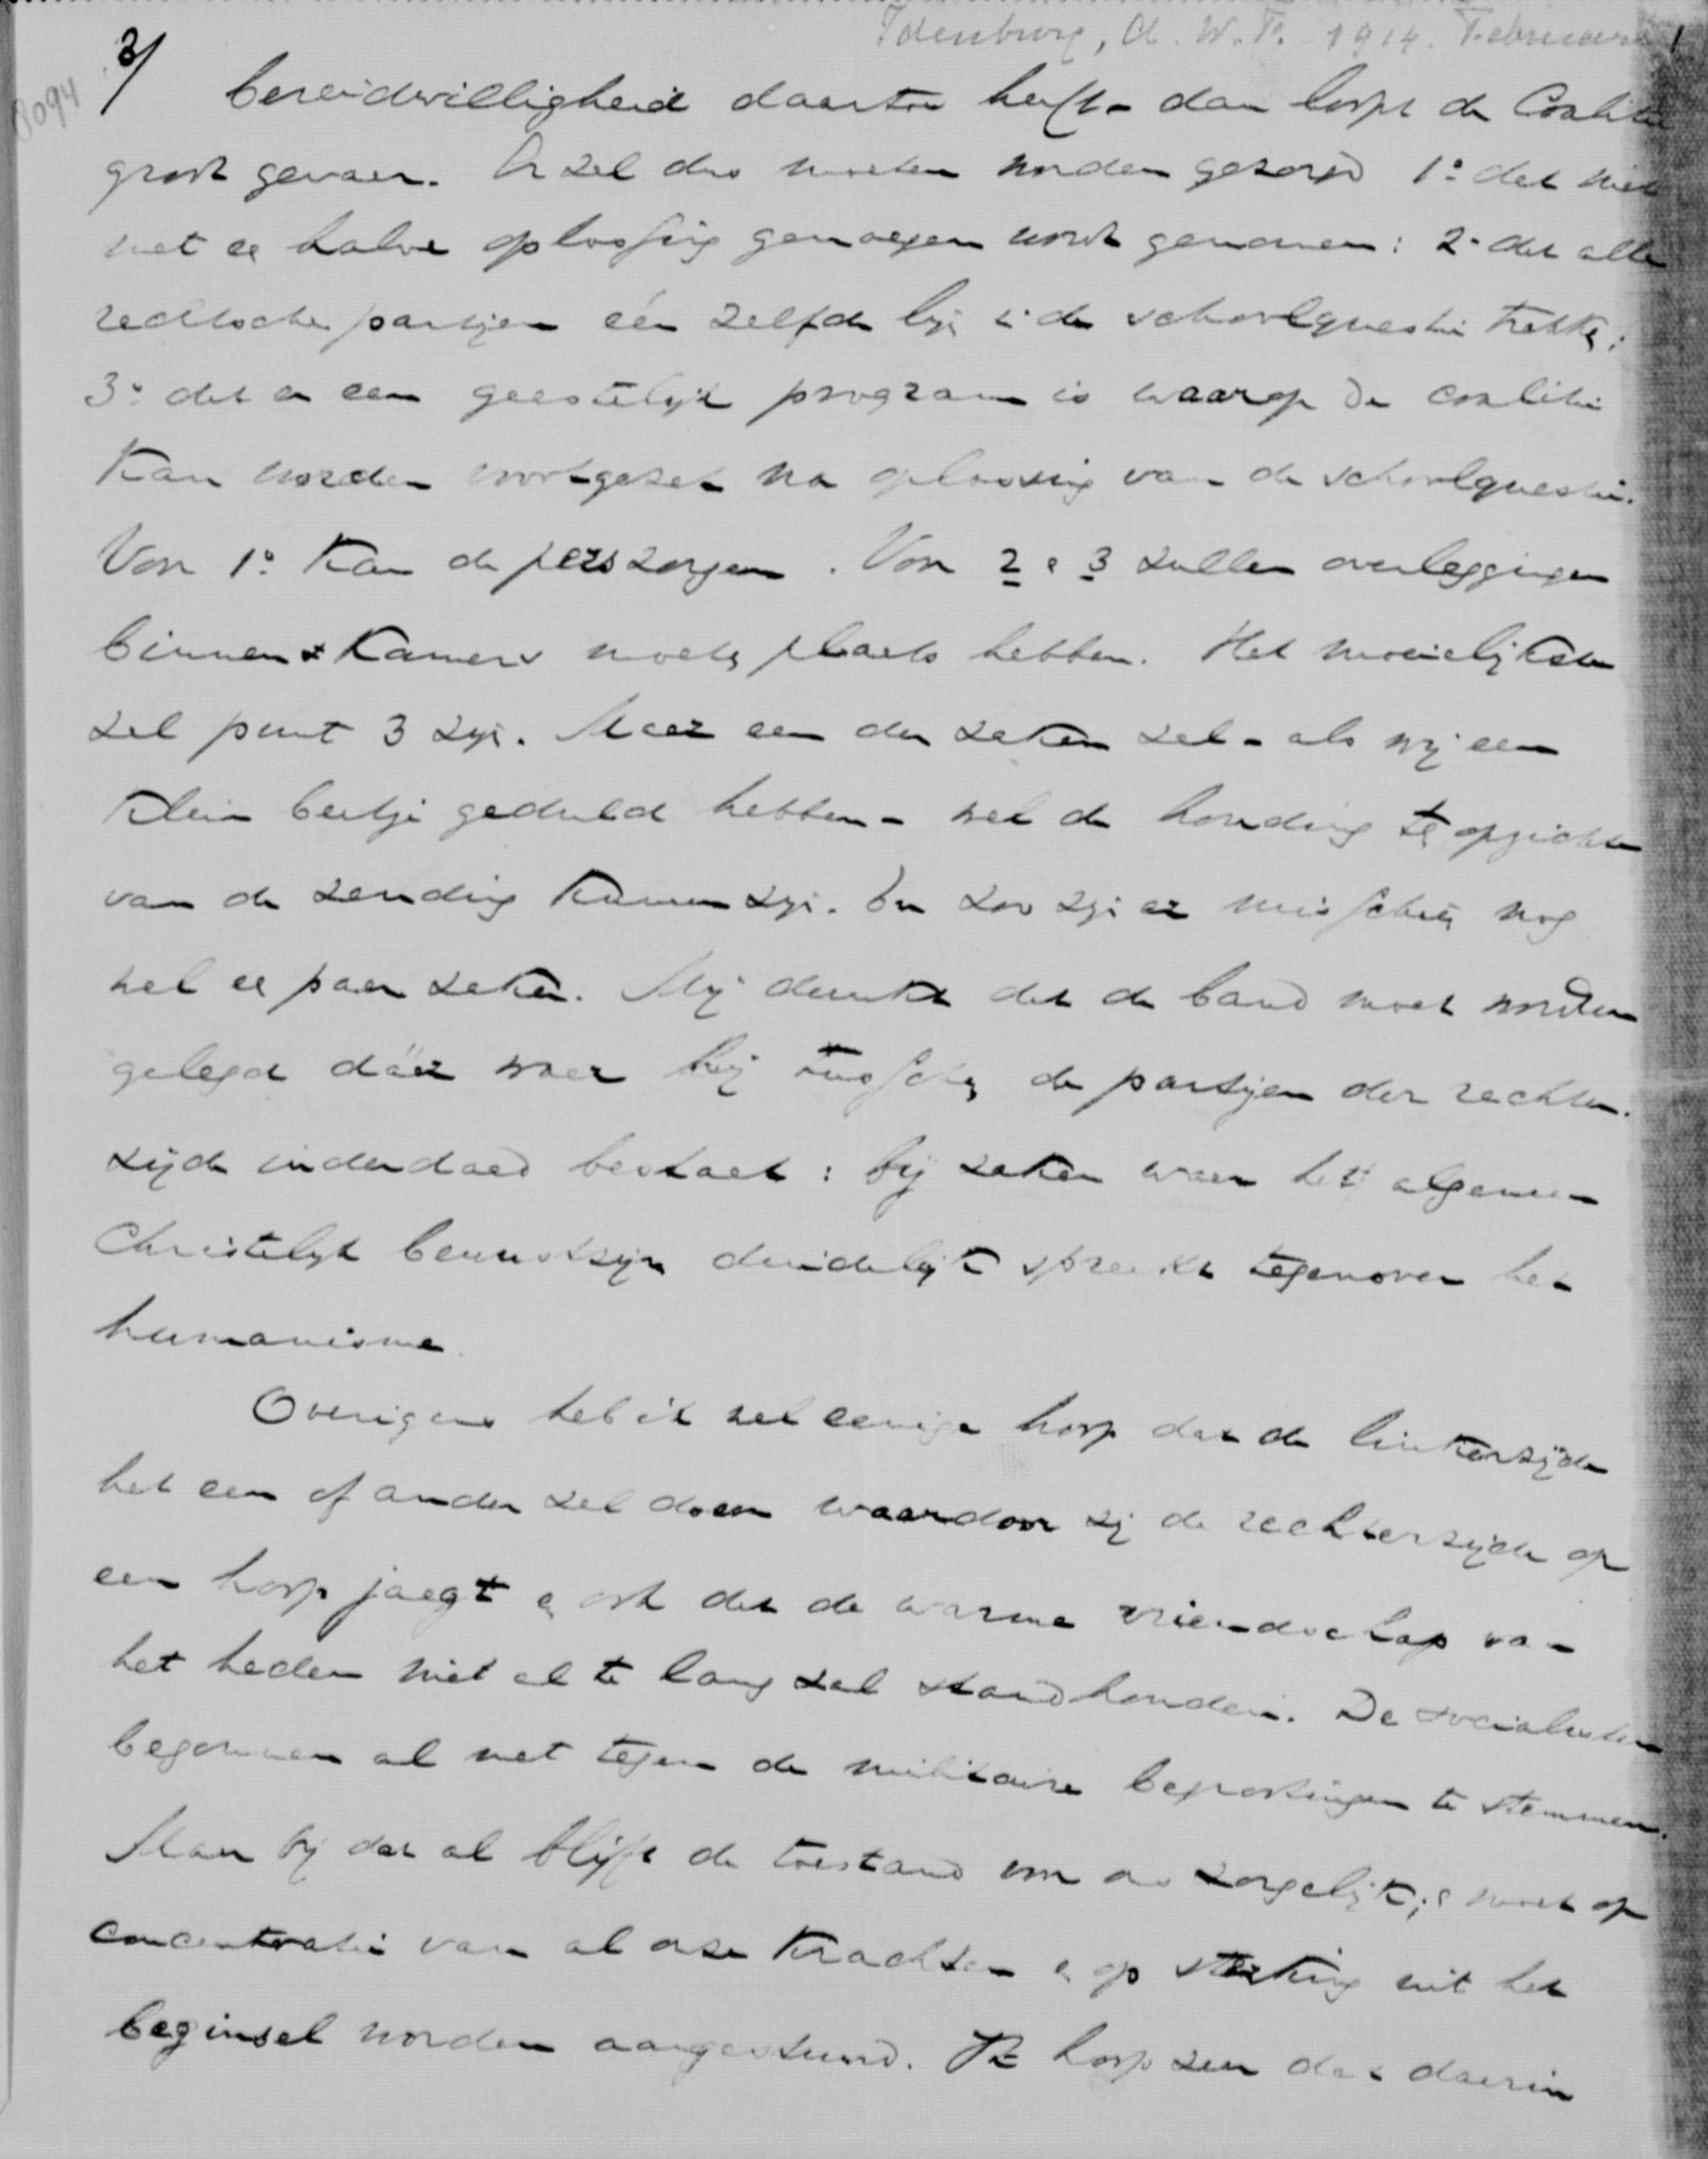 Idenburg, A. W. F. 1914. Februari 1
8094
3/
bereidwilligheid daartoe heeft – dan loopt de Coalitie
groot gevaar. Er zal dus moeten worden gezorgd 1º dat niet
met ee halve oplossing genoegen wordt genomen: 2º dat alle
rechtsche partijen één zelfde lijn i. de schoolquestie trekke;
3º dat er een geestelijk program is waarop de coalitie
kan worden voortgezet na oplossing van de schoolquestie.
Voor 1º kan de pers zorgen. Voor 2 e 3 zullen overleggingen
binnens Kamers moete plaats hebben. Het moeielijkste
zal punt 3 zijn. Maar een der zaken zal – als wij een
klein beetje geduld hebben – wel de houding te opzichte
van de zending kunnen zijn. En zoo zijn er misschie nog
wel ee paar zaken. Mij dunkt dat de band moet worden
gelegd dáár waar hij tussche de partijen der rechter-
zijde inderdaad bestaat: bij zaken waar het algemeen
Christelijk bewustzijn duidelijk spreekt tegenover het
humanisme.
Overigens heb ik wel eenige hoop dat de linkerzijde
het een of ander zal doen waardoor zij de rechterzijde op
een hoop jaagt e ook dat de warme vriendschap van
het heden niet al te lang zal standhouden. De socialisten
begonnen al met tegen de militaire begrootingen te stemmen.
Maar bij dat al blijft de toestand voor ons zorgelijk; e moet op
concentratie van al onze krachten e op sterking uit het
beginsel worden aangestuurd. Ik hoop zeer dat daarin